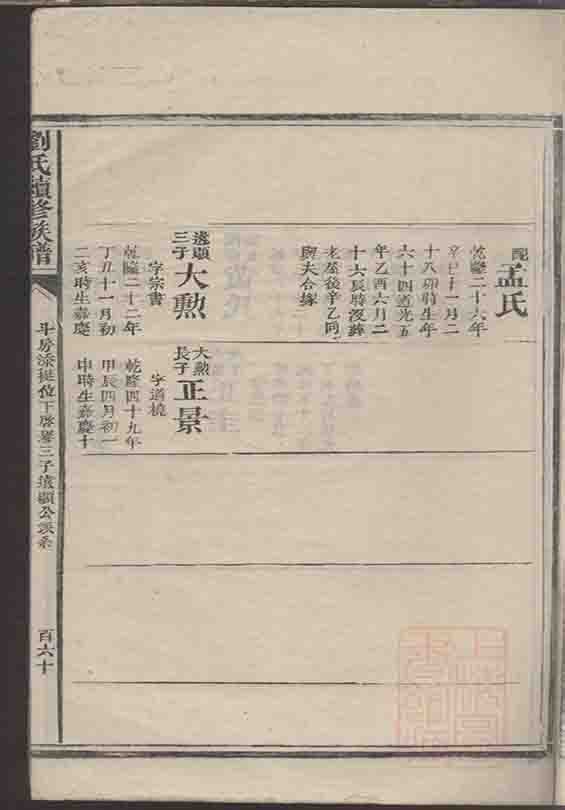 配
孟氏
乾隆二十六年
辛巳十一月二
十八卯時生年
六十四道光五
年乙酉六月二
十六辰時沒葬
老屋後辛乙同
與夫合塚
遠顯
三子
大勲
字宗書
乾隆二十二年
丁丑十一月初
二亥時生嘉慶
大勲
長子
正景
字道橈
乾隆四十九年
甲辰四月初一
申時生嘉慶十
劉氏續修族譜
斗房添挺位下啓
三子遠顯公派系
百六十